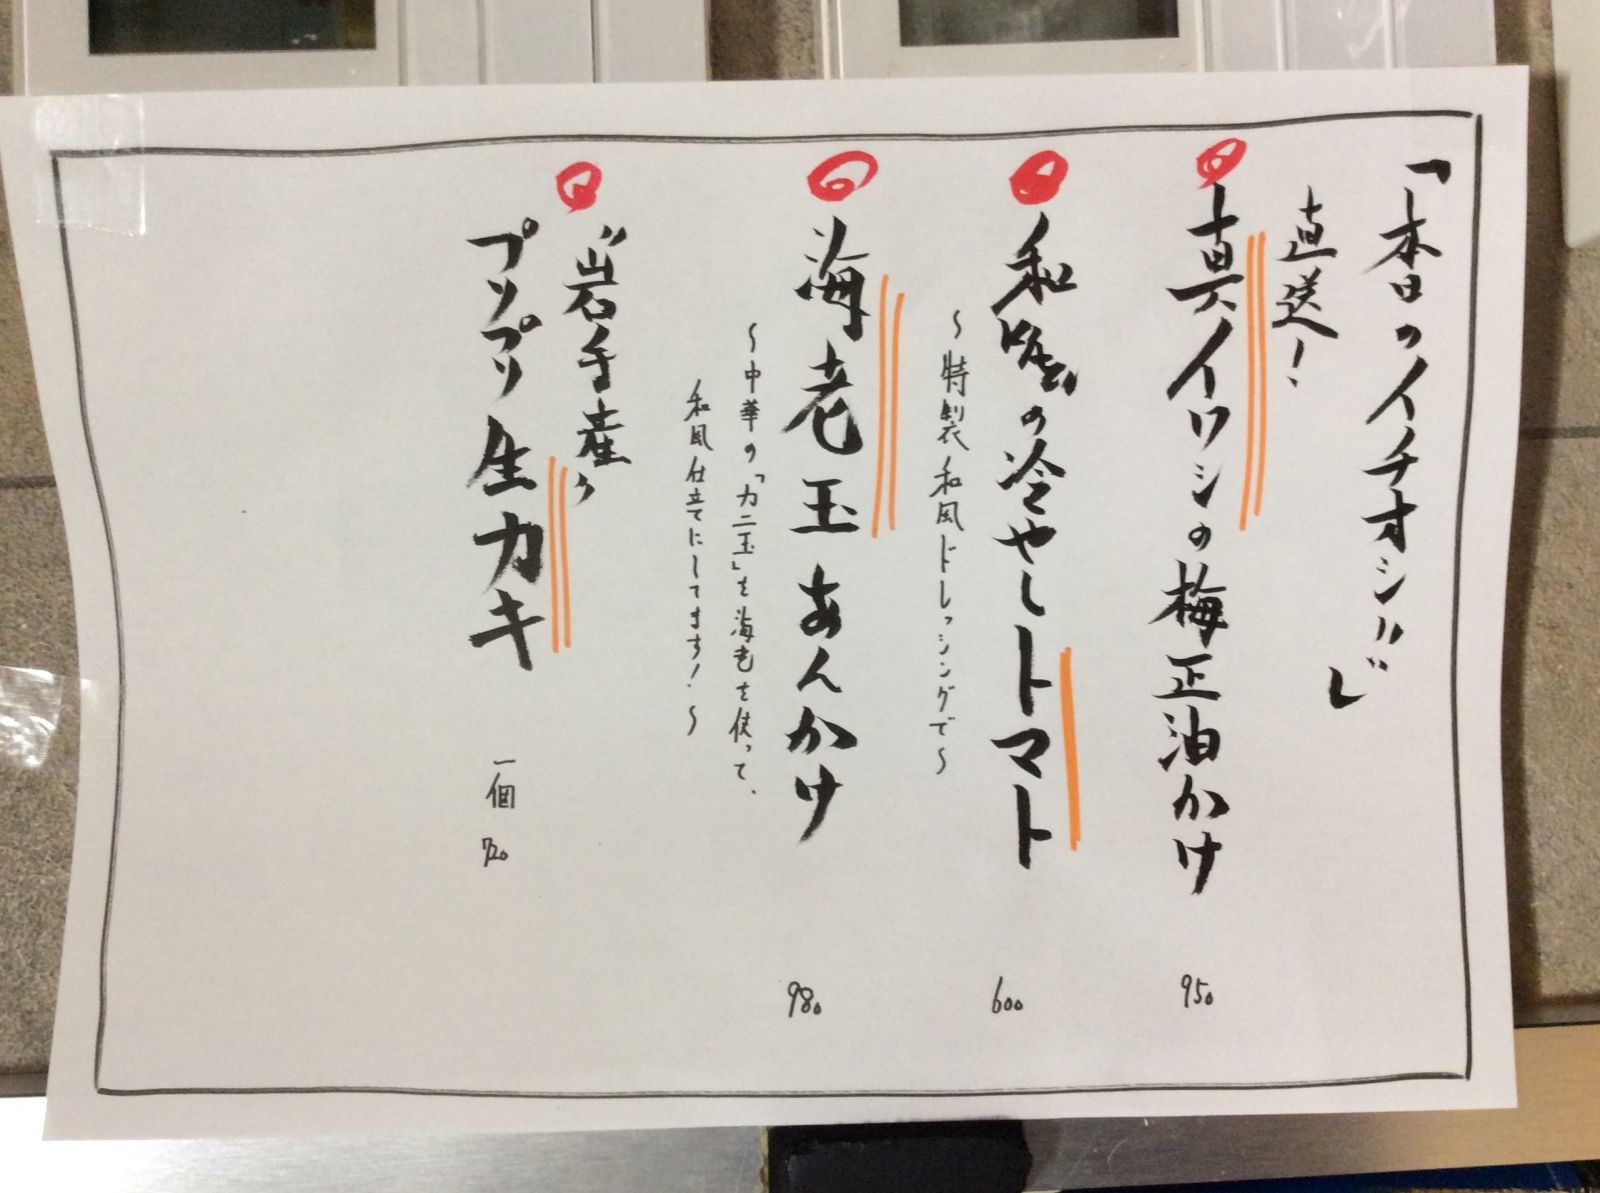 「本日のイチオシ!!」
直送！
真イワシの梅正油かけ 950
和風の冷やしトマト 600
〜特製和風ドレッシングで〜
海老玉あんかけ 980
〜中華の「カニ玉」を海老を使って、
和風仕立てにしてます！〜
"岩手産"
プリプリ生カキ 一個 720